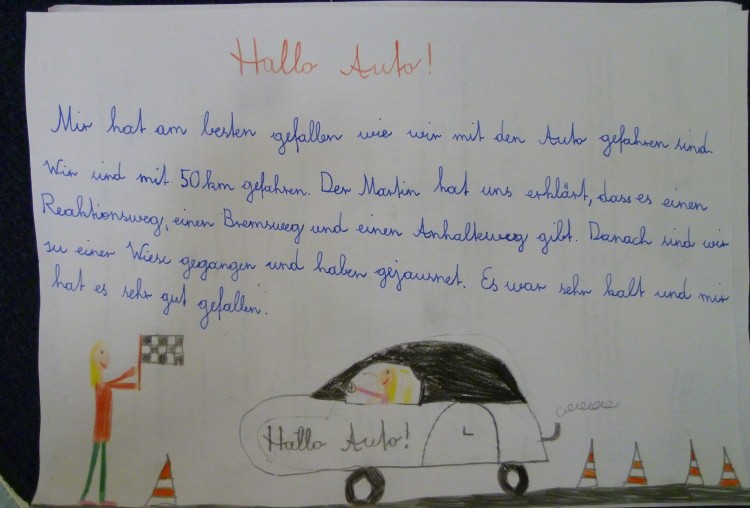 Hallo Auto!
Mir hat am besten gefallen wie wir mit den Auto gefahren sind.
Wir sind mit 50 km gefahren. Der Martin hat uns erklärt, dass es einen
Reaktionsweg, einen Bremsweg und einen Anhalteweg gibt. Danach sind wir
zu einer Wiese gegangen und haben gejausnet. Es war sehr kalt und mir
hat es sehr gut gefallen.
Hallo Auto!
L